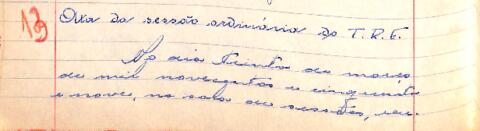 13
Ata da sessão ordinária do T.R.E.
No dia trinta de março
de mil novecentos e cinquenta
e nove, na sala de sessões, reu-